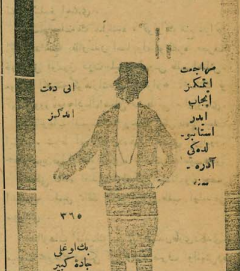 مراجعت
ایتمكز
ایجاب
ایدر
استانبو-
لده‌كی
آدره-
سنه
ای دقت
ایدكز
٣٦٥
بك اوغلی
جادهٔ كبیر